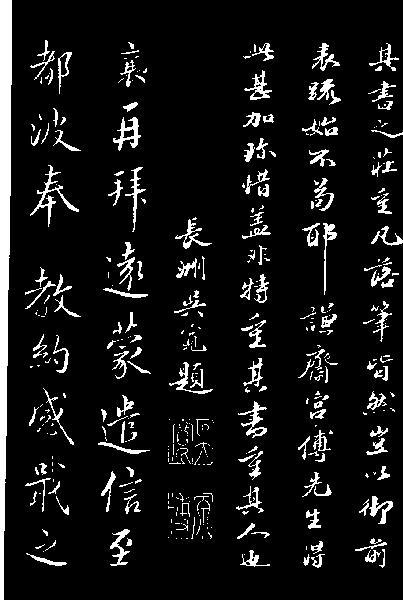 其書之莊重凡落筆皆然豈以御前
表疏始不苟耶謙齋宮傅先生得
此甚加珍惜蓋非特重其書重其人也
長洲吳寬題
襄再拜遠蒙遣信至
都波奉教約感戢之